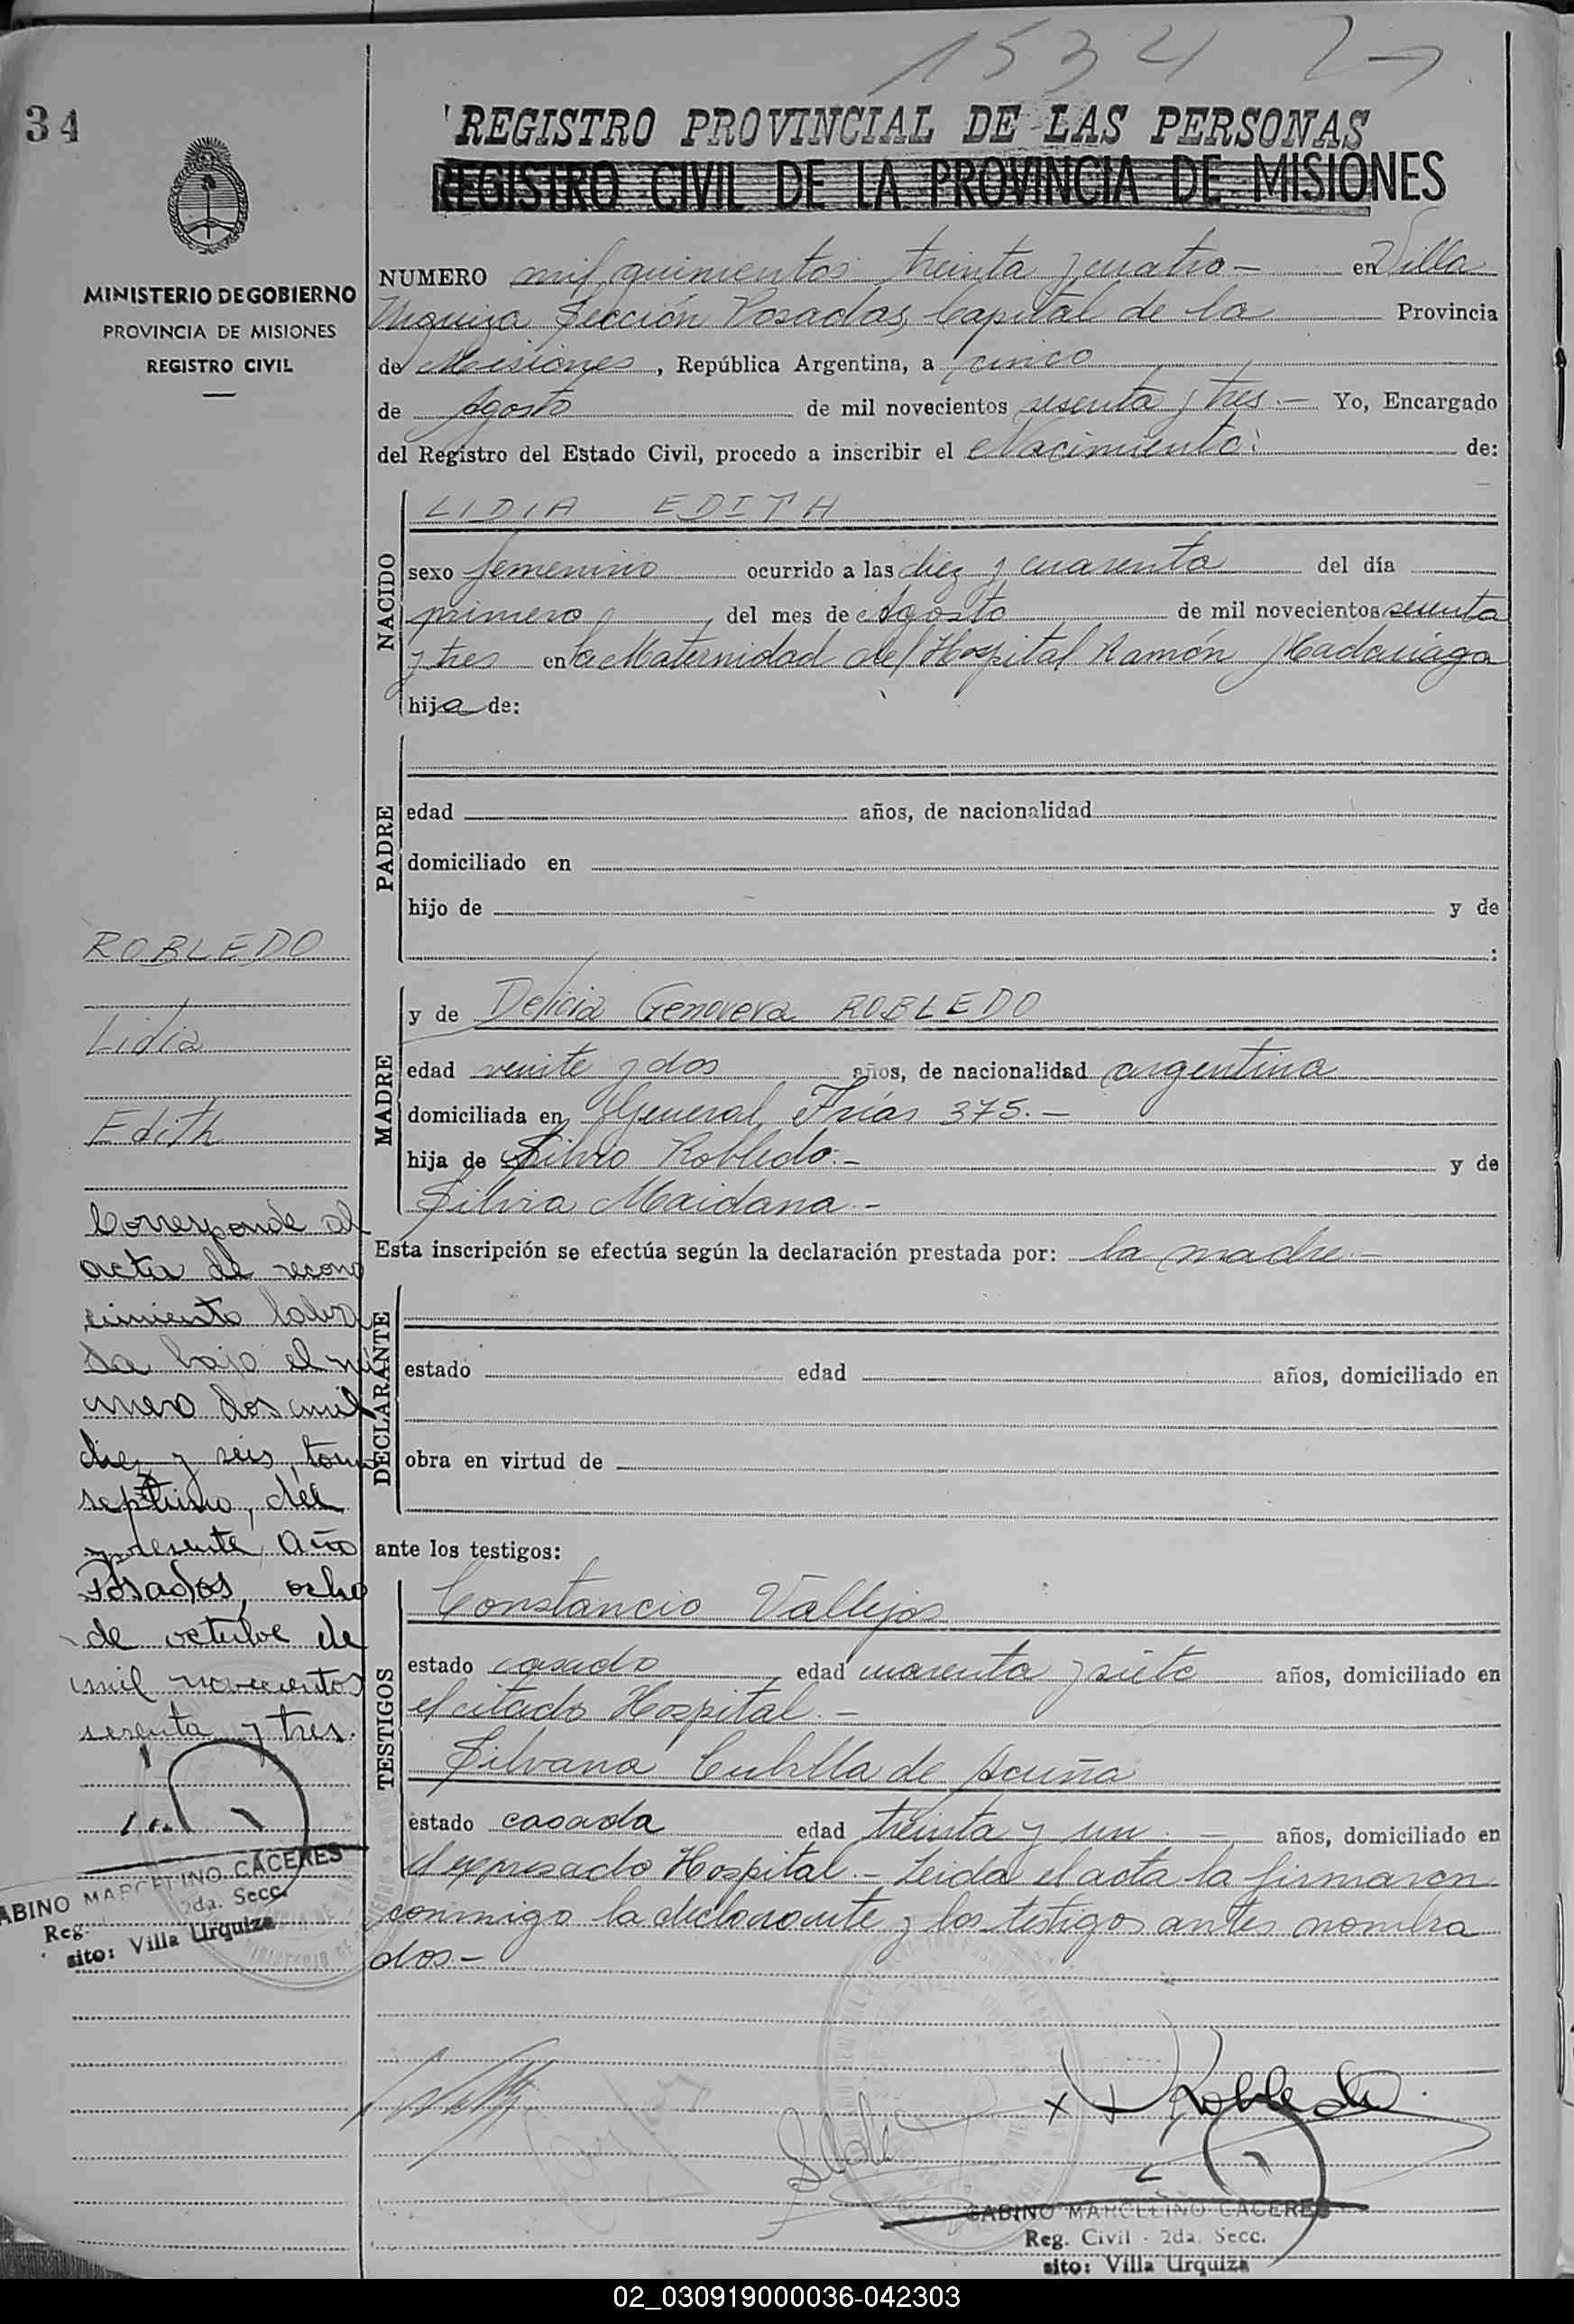 1534
34
REGISTRO PROVINCIAL DE LAS PERSONAS
REGISTRO CIVIL DE LA PROVINCIA DE MISIONES
MINISTERIO DE GOBIERNO
PROVINCIA DE MISIONES
REGISTRO CIVIL
NUMERO mil quinientos treinta y cuatro.- en Villa
Urquiza Sección Posadas, Capital de la Provincia
de Misiones, República Argentina, a cinco
de Agosto de mil novecientos sesenta y tres.- Yo, Encargado
del Registro del Estado Civil, procedo a inscribir el Nacimiento: de:
NACIDO
LIDIA EDITH
sexo femenino ocurrido a las diez y cuarenta del día
primero del mes de Agosto de mil novecientos sesenta
y tres en la Maternidad del Hospital Ramón Madariaga
hija de:
PADRE
edad años, de nacionalidad
domiciliado en
hijo de y de
:
MADRE
y de Delicia Genoveva ROBLEDO
edad veinte y dos años, de nacionalidad argentina
domiciliada en General Frías 375.-
hija de Silvio Robledo.- y de
Silvia Maidana.-
Esta inscripción se efectúa según la declaración prestada por: la madre.-
DECLARANTE
estado edad años, domiciliado en
obra en virtud de
ante los testigos:
TESTIGOS
Constancio Vallejos
estado casado edad cuarenta y siete años, domiciliado en
el citado Hospital.-
Silvana Cubilla de Acuña
estado casada edad treinta y un.- años, domiciliado en
el expresado Hospital.- Leida el acta la firmaron
conmigo la declarante y los testigos antes nombra
dos.-
ROBLEDO
Lidia
Edith
Corresponde al
acta de recono
cimiento labra
da bajo el nú
mero dos mil
diez y seis, tomo
septimo, del
presente año
Posadas, ocho
de octubre de
mil novecientos
sesenta y tres.
GABINO MARCELINO CÁCERES
Reg. 2da. Secc.
sito: Villa Urquiza
Robledo
GABINO MARCELINO CACERES
Reg. Civil - 2da. Secc.
sito: Villa Urquiza
02_030919000036-042303